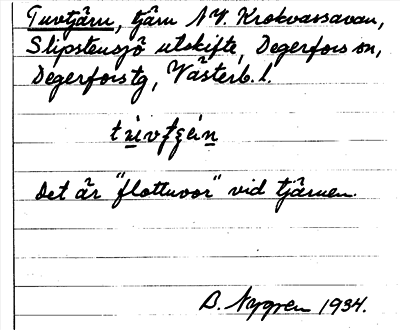 Tuvtjärn, tjärn N.V. Krokvassavan,
Slipstensjö utskifte, Degerfors sn,
Degerfors tg, Västerb. l.
Det är "flottuvor" vid tjärnen.
B. Nygren 1934.